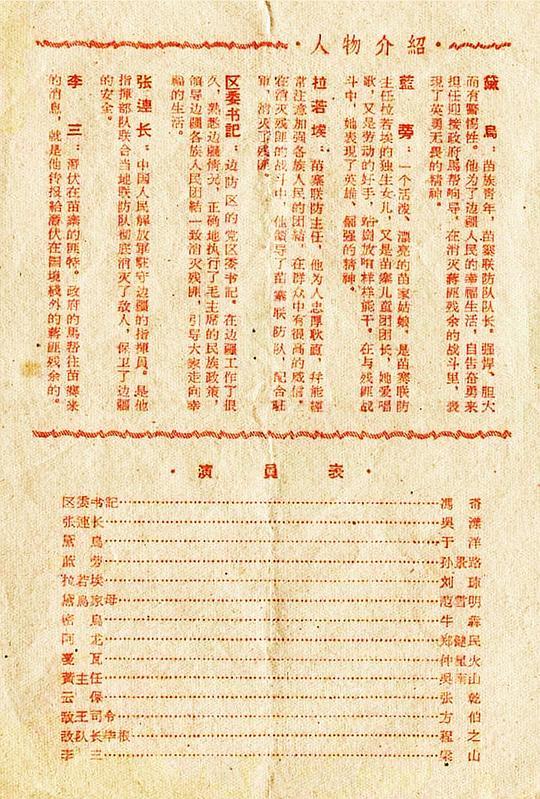 ·人物介紹·
黛 烏：苗族青年，苗寨联防队队长。强悍、胆大
而有警惕性。他为了边疆人民的幸福生活，自告奋勇来
担任迎接政府馬帮响导，在消灭蔣匪残余的战斗里，表
現了英勇无畏的精神。
藍 劳：一个活泼、漂亮的苗家姑娘，是苗寨联防
主任拉若埃的独生女儿，又是苗寨儿童团团长，她爱唱
歌，又是劳动的好手，站崗放哨样样能干。在与残匪战
斗中，她表現了英雄、倔强的精神。
拉若埃：苗寨联防主任，他为人忠厚耿直，幷能經
常注意加强各族人民的团結，在群众中有很高的威信。
在消灭残匪的战斗中，他领导了苗寨联防队，配合駐
軍，消灭了残匪。
区委书記：边防区的党区委书記。在边疆工作了很
久，熟悉边疆情况，正确地执行了毛主席的民族政策，
领导边疆各族人民团結一致消灭残匪，引导大家走向幸
福的生活。
张連长：中国人民解放軍駐守边疆的指揮員。是他
指揮部队联合当地联防队彻底消灭了敌人，保卫了边疆
的安全。
李 三：潛伏在苗寨的匪特。政府的馬帮往苗寨来
的消息，就是他传报給潛伏在国境綫外的蔣匪残余的。
·演員表·
区委书記……馮 奇
张連长……吳 漾
黛 烏……于 洋
蓝 劳……孙景路
拉若埃……刘 琼
黛烏家母……范雪明
密 烏……牛 犇
阿 龙……郑健民
戛 瓦……仲星火
黃主任……吳南山
云 保……张 乾
敌王司令……方 伯
敌队长……程 之
李 三……梁 山